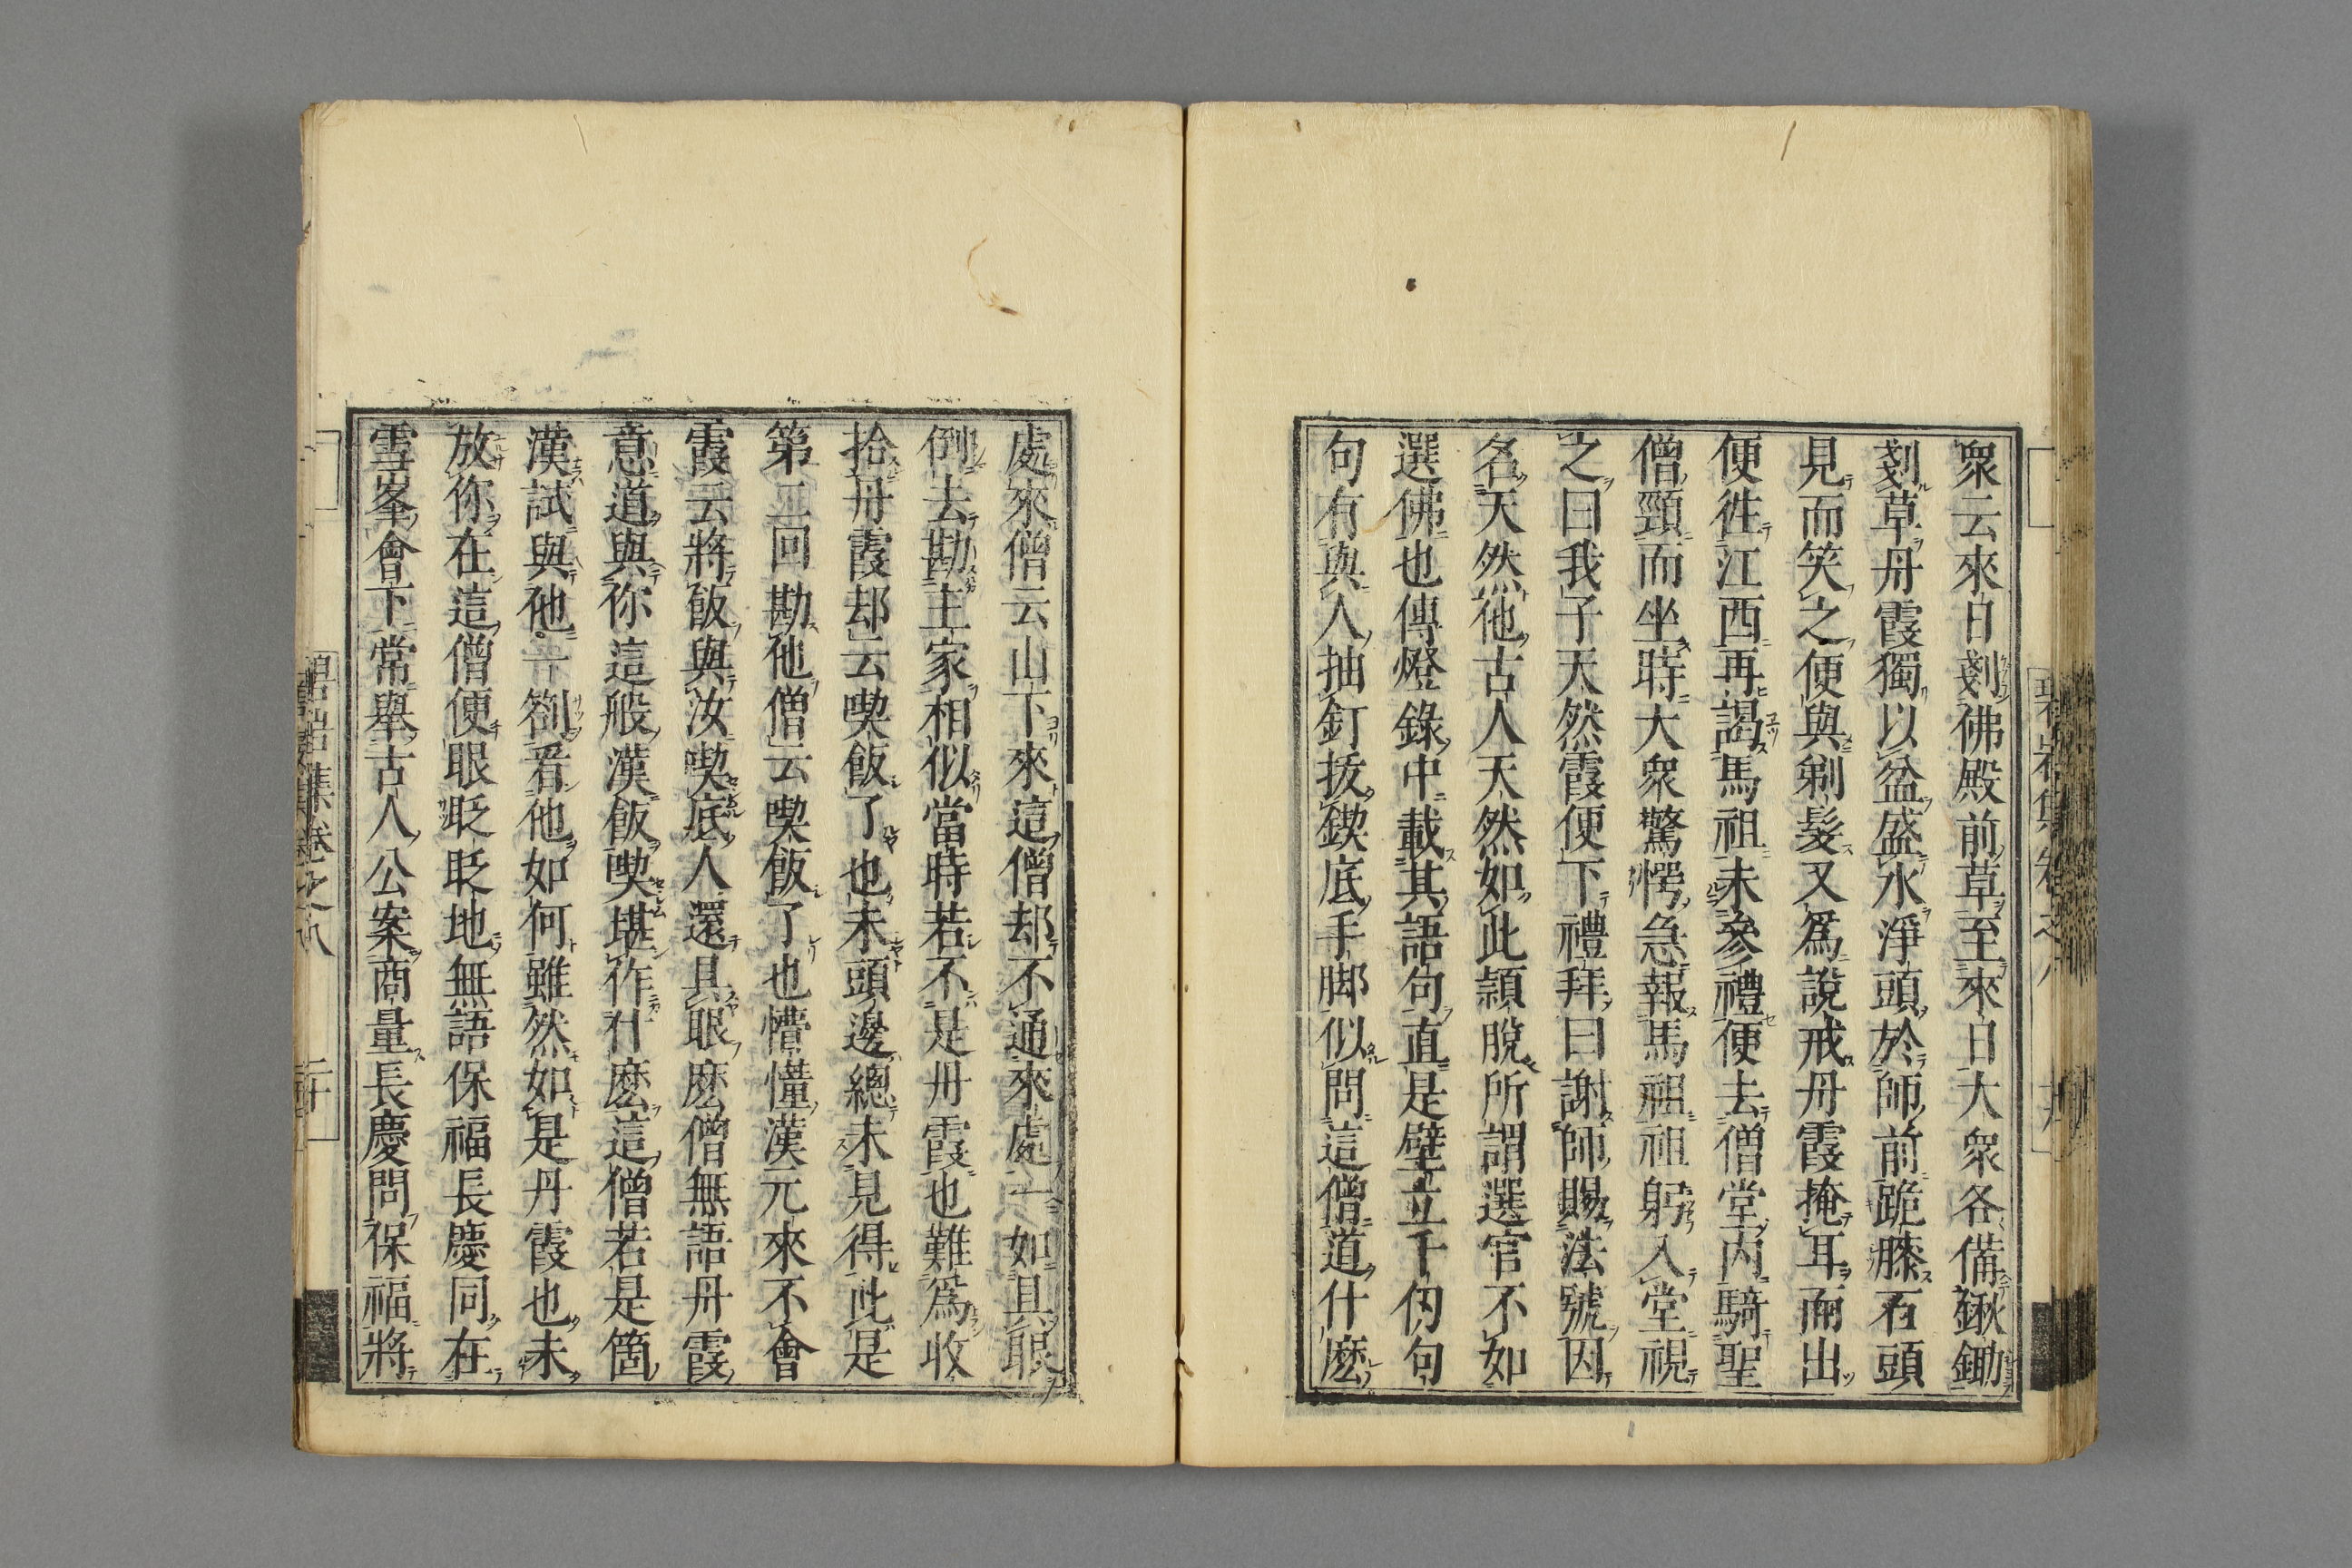 衆云來日剗佛殿前草至來日大衆各備鍬鋤
剗草丹霞獨以盆盛水淨頭於師前跪膝石頭
見而笑之便與剃髮又爲說戒丹霞掩耳而出
便徃江西再謁馬祖未參禮便去僧堂内騎聖
僧頸而坐時大衆驚愕急報馬祖祖躬入堂視
之曰我子天然霞便下禮拜曰謝師賜法號因
名天然他古人天然如此頴脫所謂選官不如
選佛也傳燈錄中載其語句直是壁立千仞句
句有與人抽釘拔鍥底手脚似問這僧道什麽
處來僧云山下來這僧却不通來處一如具眼
倒去勘主家相似當時若不是丹霞也難爲收
拾丹霞却云喫飯了也未頭邊總未見得此是
第二回勘他僧云喫飯了也懵懂漢元來不會
霞云將飯與汝喫底人還具眼麽僧無語丹霞
意道與你這般漢飯喫堪作什麽這僧若是箇
漢試與他一劄看他如何雖然如是丹霞也未
放你在這僧便眼眨眨地無語保福長慶同在
雪峯會下常舉古人公案商量長慶問保福將
碧岩集卷之八